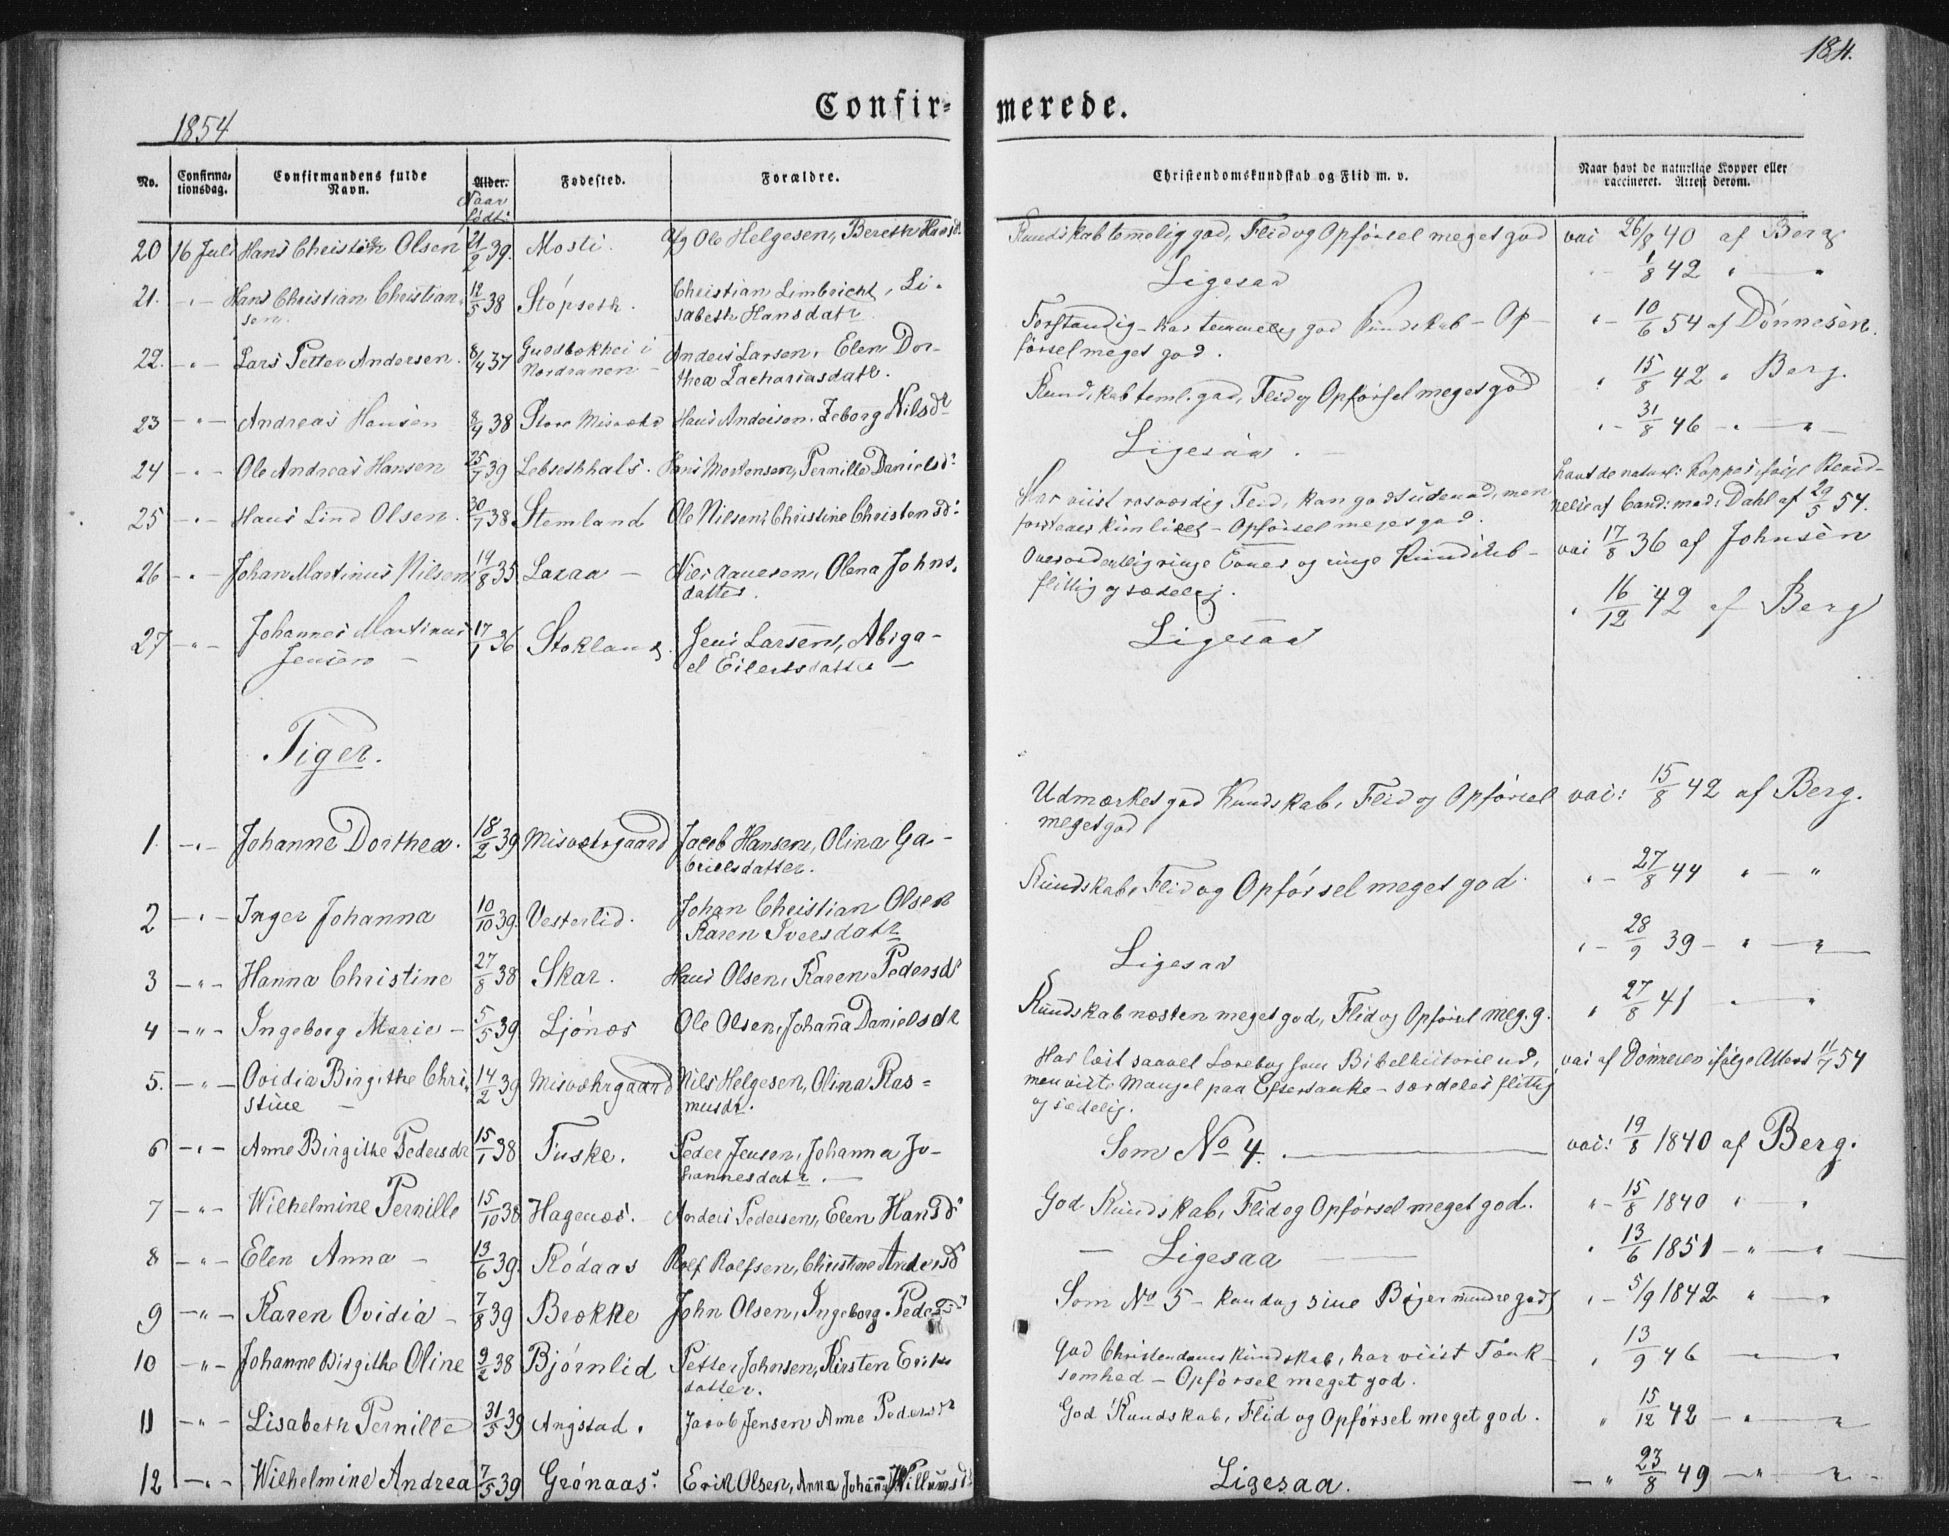 184.
Confir-
merede.
1854
No.
Confirma-
tionsdag.
Confirmandens fulde
Navn.
Alder.
Naar
født:
Fødested.
Forældre.
Christendomskundskab og Flid m. v.
Naar havt de naturlige Kopper eller
vaccineret. Attest derom.
20 16 Juli Hans Christian Olsen 21/2 39. Mosti. Ole Helgesen, Bereth Hansd.
Kundskab temmelig god, Flid og Opførsel meget god
vac 26/8 40 af Berg
21. -"- Hans Christian Christian-
sen 12/5 38 Stöpseth. Christian Limbricht, Li-
sabeth Hansdatr
Ligesaa
- 1/8 42 " — "
22. -"- Lars Petter Andersen. 8/4 37 i
Nordranen - Anders Larsen, Elen Dor-
thea Zachariasdatr.
Forstandig - har temmelig god Kundskab - Op-
førsel meget god.
"- 10/6 54 af Dönnesen.
23 -"- Andreas Hansen 8/4 38 Store Misvær Hans Andersen, Zeborg Nilsdr
Kundskab teml. god, Flid og Opførsel meget god
" 15/8 42 " Berg.
24 -"- Ole Andreas Hansen 25/7 39 Hans Mortensen, Pernille Danielsd:
Ligesaa. -
"- 31/8 46 -"-"-
25 -"- Hans Lind Olsen. 30/7 38 Stemland Ole Nilsen, Christine Christensd:
Har viist rosværdig Flid, kan godt udenad, men
forstaaer kun lidet - Opførsel meget god.
havt de naturl: Kopper ifølge
af Cand: med: Dahl af 29/5 54.
26 -"- Johan Martinus Nilsen 19/8 35 Laxaa - Nils Aanesen, Olena Johns-
datter.
Overordentlig ringe Evner og ringe Kundskab -
flittig og sædelig.
vac 17/8 36 af Johnsen
27 -"- Johannes Martinus
Jensen - 17/1 36 Stokland Jens Larsen, Abiga-
el Eilertsdatter -
Ligesaa
" 16/12 42 af Berg
Piger.
1. -"- Johanne Dorthea. 18/2 39 Misværgaard Jacob Hansen, Olina Ga-
brielsdatter.
Udmærket god Kundskab, Flid og Opførsel
meget god
vac: 15/8 42 af Berg.
2 -"- Inger Johanna 10/10 39. Vesterlid. Johan Christian Olsen
Karen Iversdatr
Kundskab, Flid og Opførsel meget god.
"- 27/8 44 " - "
3 -"- Hanna Christine 27/8 38 Skar. Hans Olsen, Karen Pedersdr
Ligesaa
"- 28/9 39 - " - "
4 -"- Ingeborg Marie - 5/5 39. Ljönæs Ole Olsen, Johana Danielsdr
Kundskab næsten meget god, Flid og Opførsel meg. g.
" 27/8 41 " "
5. -"- Ovidia Birgithe Chri-
stine - 14/2 39 Misværgaard Nils Helgesen, Olina Ras-
musdr.
Har læst saavel Lærebog som Bibelhistorie ud,
men viist Mangel paa Eftertanke - særdeles flittig
og sædelig.
vac af Dönnesen ifølge Attest 11/7 54
6 -"- Anne Birgithe Pedersdr 15/1 38 Fuske. Peder Jensen, Johanna Jo-
hannesdatr. -
Som No 4. —
vac: 19/8 1840 af Berg.
7 -"- Wilhelmine Pernille 15/10 38 Hagenæs. Anders Pedersen, Elen Hansd
God Kundskab, Flid og Opførsel meget god.
"- 15/8 1840 " "
8 -"- Elen Anna - 13/6 39. Rödaas Rolf Rolfsen, Christine Andersd
— Ligesaa —
" 13/6 1851 - " - "
9 -"- Karen Ovidia - 7/8 39 Brække John Olsen, Ingeborg Pedersd
Som No 5 - kan dog sine Bøger mindre godt
"- 5/9 1842 " - "
10 -"- Johanne Birgithe Oline 9/2 38 Bjørnlid Petter Johnsen, Kirsten Eriks
datter.
God Christendomskundskab, har viist Tænk-
somhed - Opførsel meget god.
" 13/9 46 — "
11 -"- Lisabeth Pernille 31/5 39 Angstad. Jacob Jensen Anne Pedersdr
God Kundskab, Flid og Opførsel meget god.
" 15/12 42 - " - "
12 -"- Wilhelmine Andrea 7/5 39 Grönaas: Erik Olsen, Anna Johana Willumsd:
Ligesaa.
- " 23/8 49 - " - " -